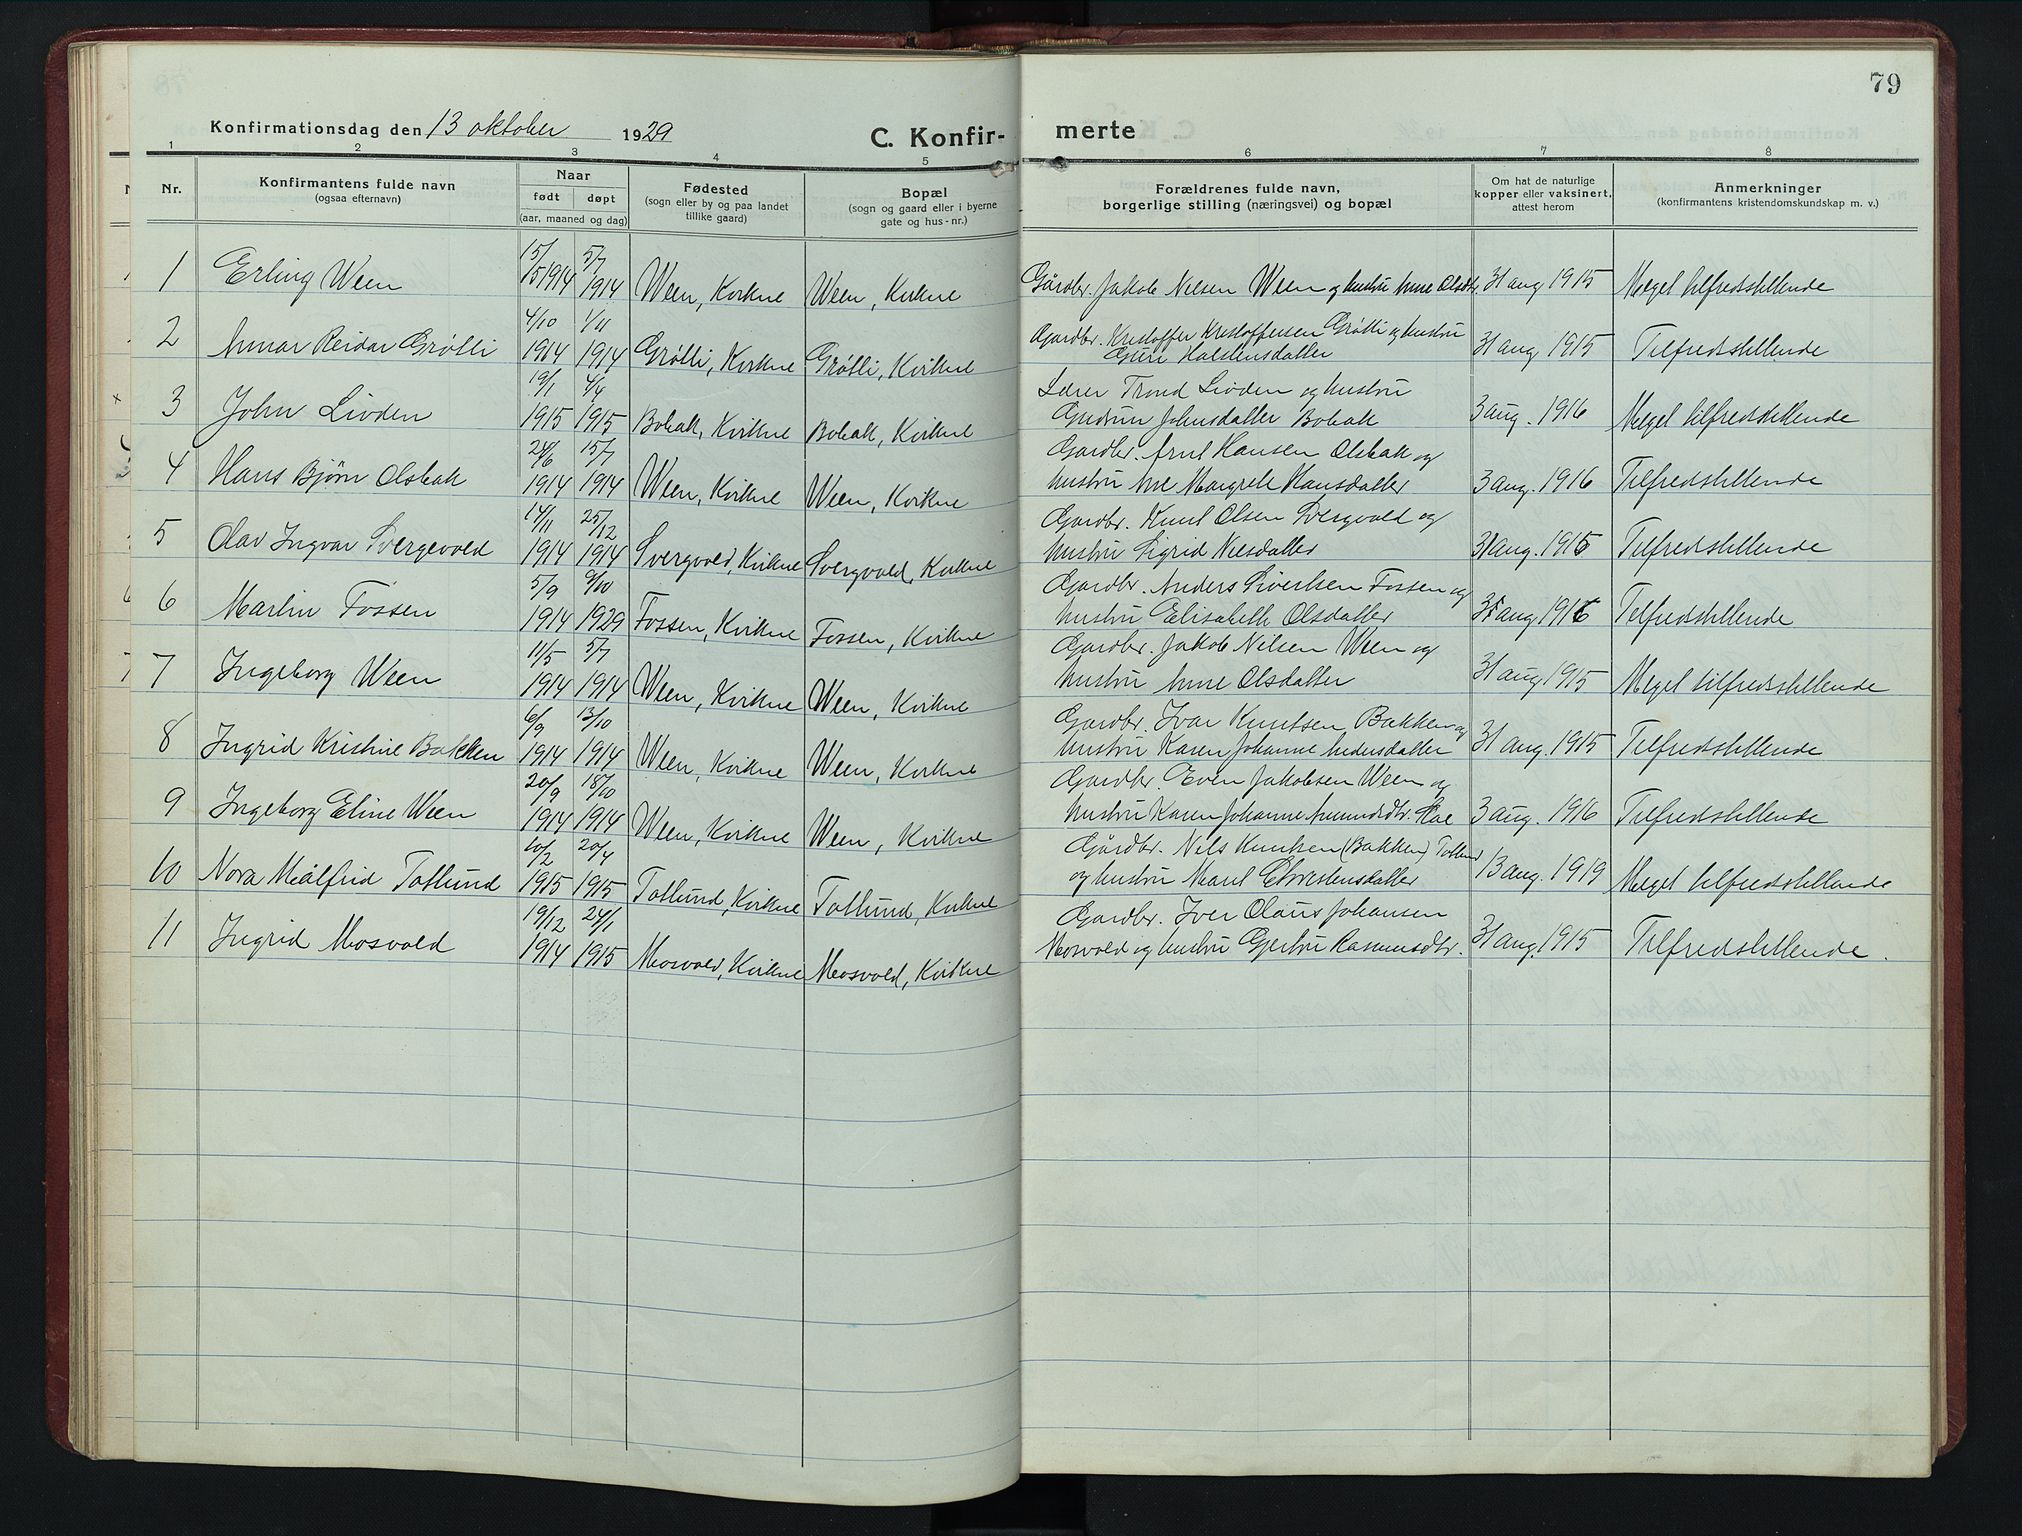 79
Konfirmationsdag den 13 oktober 1929
C. Konfir- merte
1 2 3 4 5 6 7 8
Nr.
Konfirmantens fulde navn
(ogsaa efternavn)
Naar
født døpt
(aar, maaned og dag)
Fødested
(sogn eller by og paa landet
tillike gaard)
Bopæl
(sogn og gaard eller i byerne
gate og hus-nr.)
Forældrenes fulde navn,
borgerlige stilling (næringsvei) og bopæl
Om hat de naturlige
kopper eller vaksinert,
attest herom
Anmerkninger
(konfirmantens kristendomskundskap m. v.)
1 Erling Ween 15/5 1914 5/7 1914 Ween, Kvikne Ween, Kvikne Gårdbr. Jakob Nilsen Ween og hustru Anne Olsdtr. 31 aug 1915 Meget tilfredsstillende
2 Annar Reidar Grøtli 4/10 1914 1/11 1914 Grøtli, Kvikne Grøtli, Kvikne Gardbr. Kristoffer Kristoffersen Grøtli og hustru
Guri Halstensdatter 31 aug 1915 Tilfredsstillende
3 John Livden 19/1 1915 4/4 1915 Bobak, Kvikne Bobak, Kvikne Lærer Trond Livden og hustru
Gudrun Johnsdatter Bobak 3 aug. 1916 Meget tilfredsstillende
4 Hans Bjørn Olsbak 24/6 1914 15/7 1914 Ween, Kvikne Ween, Kvikne Gardbr. Arnt Hansen Olsbak og
hustru Ane Margrete Hansdatter 3 aug. 1916 Tilfredsstillende
5 Olav Ingvar Svergevold 14/11 1914 25/12 1914 Svergvold, Kvikne Svergvold, Kvikne Gardbr. Knut Olsen Svergvold og
hustru Sigrid Nilsdatter 31 aug. 1915 Tilfredsstillende
6 Martin Fossen 5/9 1914 9/10 1929 Fossen, Kvikne Fossen, Kvikne Gardbr. Anders Sivertsen Fossen og
hustru Elisabeth Olsdatter aug Tilfredsstillende
7 Ingeborg Ween 11/5 1914 5/7 1914 Ween, Kvikne Ween, Kvikne Gardbr. Jakob Nilsen Ween og
hustru Anne Olsdatter 31 aug 1915 Meget tilfredsstillende
8 Ingrid Kristine Bakken 6/9 1914 13/10 1914 Ween, Kvikne Ween, Kvikne Gardbr. Ivar Knutsen Bakken og
hustru Karen Johanne Andersdatter 31 aug. 1915 Tilfredsstillende
9 Ingeborg Eline Ween 20/9 1914 18/10 1914 Ween, Kvikne Ween, Kvikne Gardbr. Even Jakobsen Ween og
hustru Karen Johanne Amundsdtr. Hoe 3 aug. 1916 Tilfredsstillende
10 Nora Målfrid Totlund 10/2 1915 20/4 1915 Totlund, Kvikne Totlund, Kvikne Gårdbr. Nils Knutsen (Bakken) Totlund
og hustru Marit Christensdatter 13 aug. 1919 Meget tilfredsstillende
11 Ingrid Mosvold 19/12 1914 24/1 1915 Mosvold, Kvikne Mosvold, Kvikne Gardbr. Iver Claus Johansen
Mosvold og hustru Gjertru Rasmusdtr. 31 aug. 1915 Tilfredsstillende.